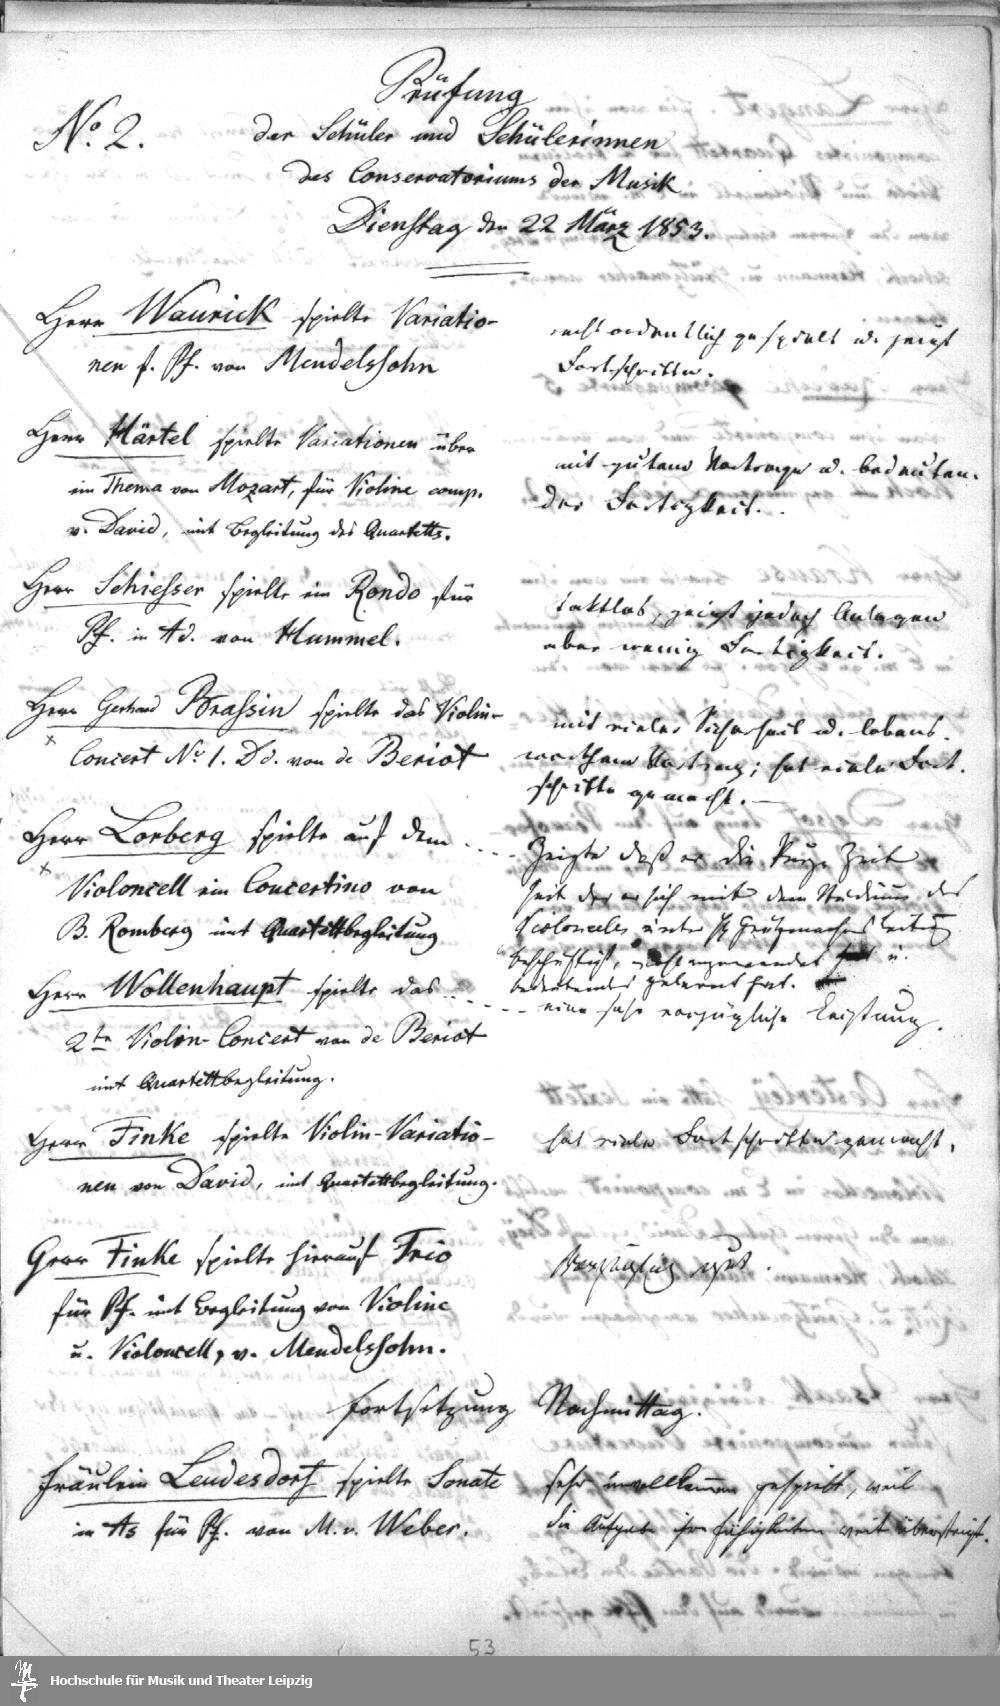 Prüfung
No. 2.
der Schüler und Schülerinnen
des Conservatoriums der Musik
Dienstag den 22 März 1853.
Herr Waurick spielte Variatio-
nen f. Pf. von Mendelssohn
recht ordentlich gespielt u. zeigt
Fortschritte.
Herr Härtel spielte Variationen über
ein Thema von Mozart, für Violine comp.
v. David, mit Begleitung des Quartetts.
mit gutem Vortrage u. bedeuten-
der Fertigkeit.
Herr Schiesser spielte ein Rondo für
Pf. in A d. von Hummel.
taktlos, zeigt jedoch Anlagen
aber wenig Fertigkeit.
Herr Gerhard Brassin spielte das Violin-
Concert No 1. D d. von de Beriot
mit vieler Sicherheit u. lobens-
werthem Vortrag; hat viele Fort-
schritte gemacht. —
Herr Lorberg spielte auf dem
Violoncell ein Concertino von
B. Romberg mit Quartettbegleitung
Zeigte daß er die kurze Zeit
seit der er sich mit dem Studium des
Violoncelles unter H Grützmachers Leitung
beschäftigt, u.
bedeutendes gelernt hat.
Herr Wollenhaupt spielte das
2te Violin-Concert von de Beriot
mit Quartettbegleitung.
eine sehr vorzügliche Leistung.
Herr Finke spielte Violin-Variatio-
nen von David, mit Quartettbegleitung.
hat viele Fortschritte gemacht.
Herr Finke spielte hierauf Trio
für Pf. mit Begleitung von Violine
u. Violoncell, v. Mendelssohn.
Vorzüglich gut.
Fortsetzung Nachmittag.
Fräulein Leudesdorf spielte Sonate
in As für Pf. von M. v. Weber.
sehr unvollkommen gespielt, weil
die Aufgabe ihre Fähigkeiten weit übersteigt.
53
Hochschule für Musik und Theater Leipzig